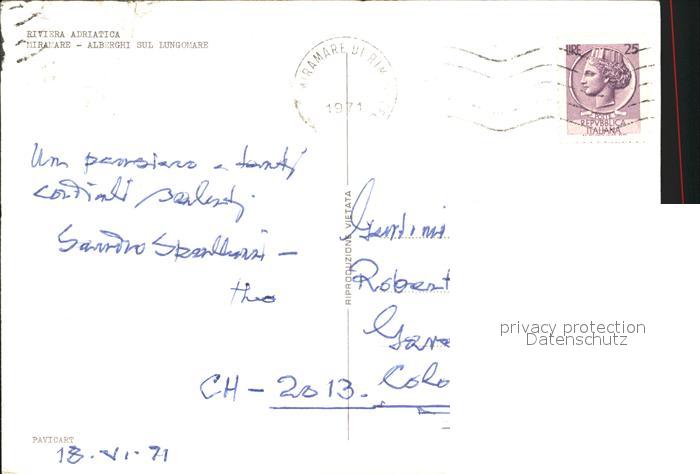 RIVIERA ADRIATICA
MIRAMARE - ALBERGHI SUL LUNGOMARE
MIRAMARE DI RIM
1971
LIRE 25
POSTE
REPVBBLICA
ITALIANA
Un pensiero e tanti
cordiali saluti.
Sandro
RIPRODUZIONE VIETATA
Robert
CH - 2013. Colo
privacy protection
Datenschutz
PAVICART
18. VI. 71